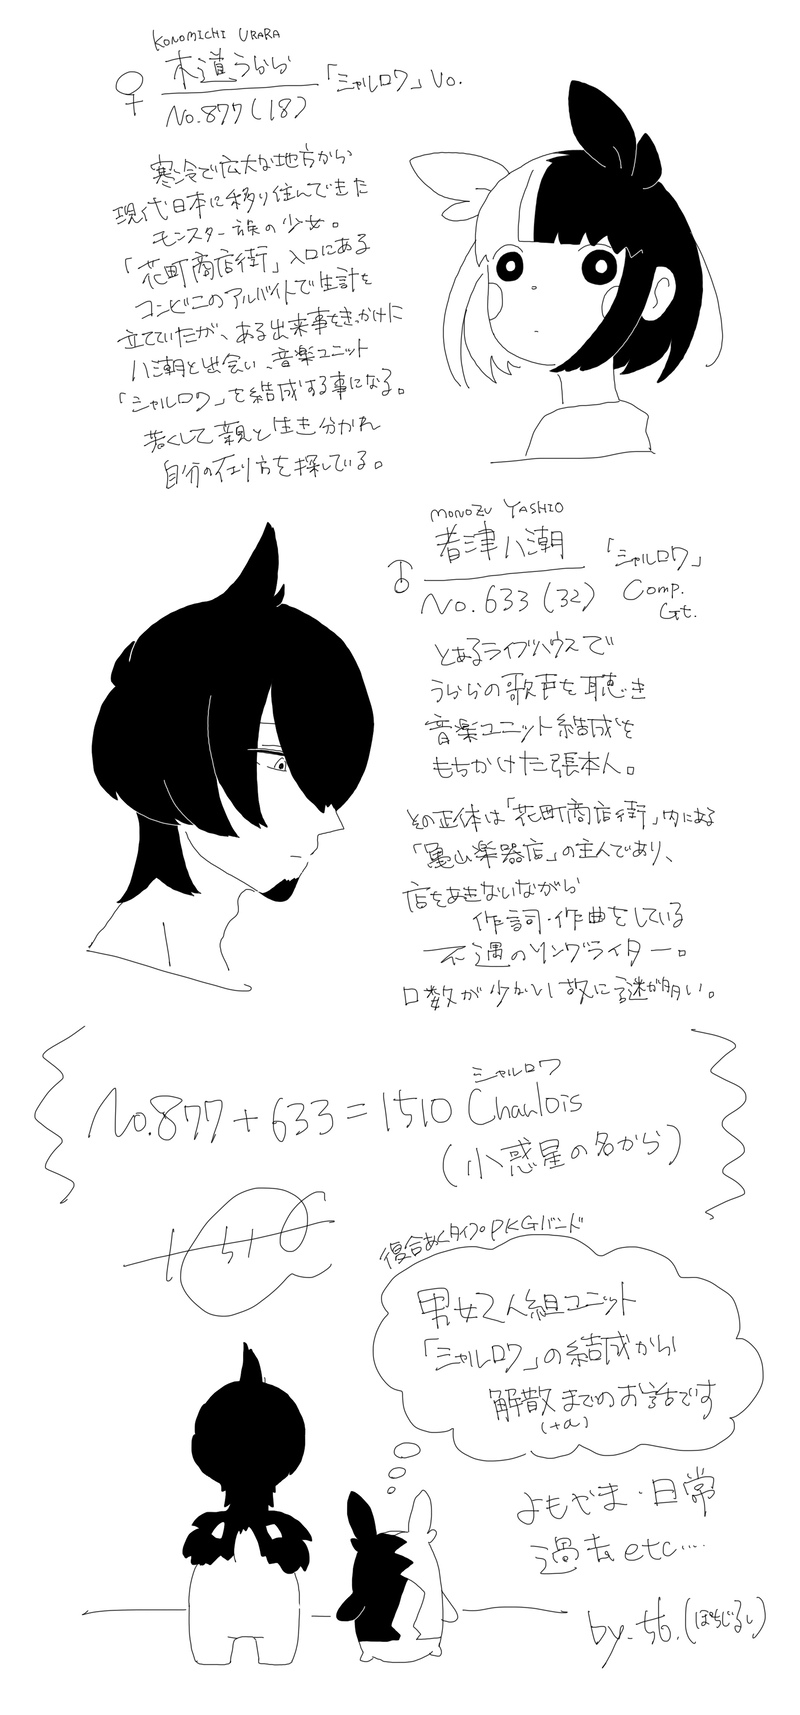 KONOMICHI URARA
木道うらら
♀
No.877(18)
「シャルロワ」Vo.
寒冷で広大な地方から
現代日本に移り住んできた
モンスター族の少女。
「花町商店街」入口にある
コンビニのアルバイトで生計を
立てていたが、ある出来事をきっかけに
八潮と出会い、音楽ユニット
「シャルロワ」を結成する事になる。
若くして親と生き分かれ
自分の在り方を探している。
MONOZU YASHIO
者津八潮
♂
No.633(32)
「シャルロワ」
Comp.
Gt.
とあるライブハウスで
うららの歌声を聴き
音楽ユニット結成を
もちかけた張本人。
その正体は「花町商店街」内にある
「亀山楽器店」の主人であり、
店をあきないながら
作詞・作曲をしている
不遇のソングライター。
口数が少ない故に謎が多い。
シャルロワ
No.877+633=1510 Charlois
(小惑星の名から)
1510
複合あくタイプPKGバンド
男女2人組ユニット
「シャルロワ」の結成から
解散までのお話です
(+α)
よもやま・日常
過去etc…